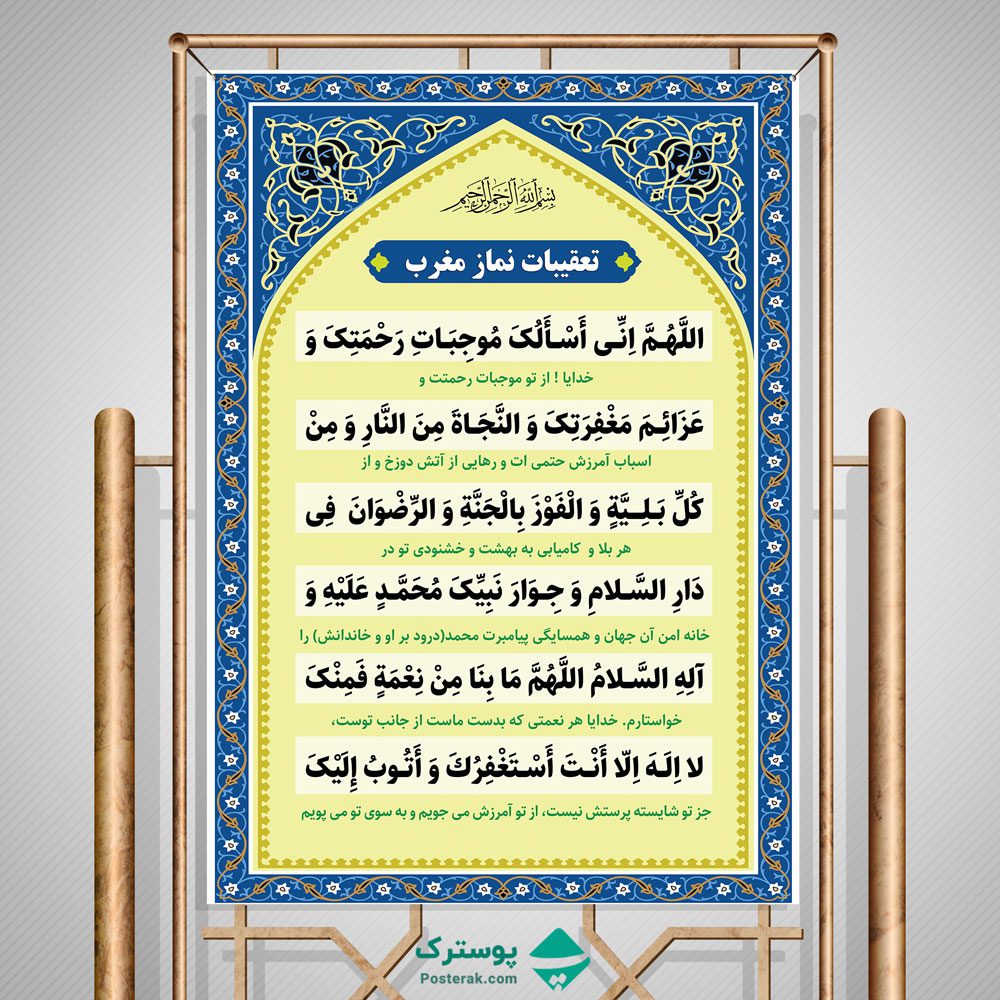 بسم الله الرحمن الرحیم
تعقیبات نماز مغرب
اللَّهُمَّ اِنِّی أَسْأَلُکَ مُوجِبَاتِ رَحْمَتِکَ وَ
خدایا ! از تو موجبات رحمتت و
عَزَائِمَ مَغْفِرَتِکَ وَ النَّجَاةَ مِنَ النَّارِ وَ مِنْ
اسباب آمرزش حتمی ات و رهایی از آتش دوزخ و از
کُلِّ بَلِیَّةٍ وَ الْفَوْزَ بِالْجَنَّةِ وَ الرِّضْوَانَ فِی
هر بلا و کامیابی به بهشت و خشنودی تو در
دَارِ السَّلامِ وَ جِوَارَ نَبِیِّکَ مُحَمَّدٍ عَلَیْهِ وَ
خانه امن آن جهان و همسایگی پیامبرت محمد(درود بر او و خاندانش) را
آلِهِ السَّلامُ اللَّهُمَّ مَا بِنَا مِنْ نِعْمَةٍ فَمِنْکَ
خواستارم. خدایا هر نعمتی که بدست ماست از جانب توست،
لا اِلَهَ اِلّا أَنْتَ أَسْتَغْفِرُكَ وَ أَتُوبُ إِلَیْکَ
جز تو شایسته پرستش نیست، از تو آمرزش می جویم و به سوی تو می پویم
پوسترک
Posterak.com